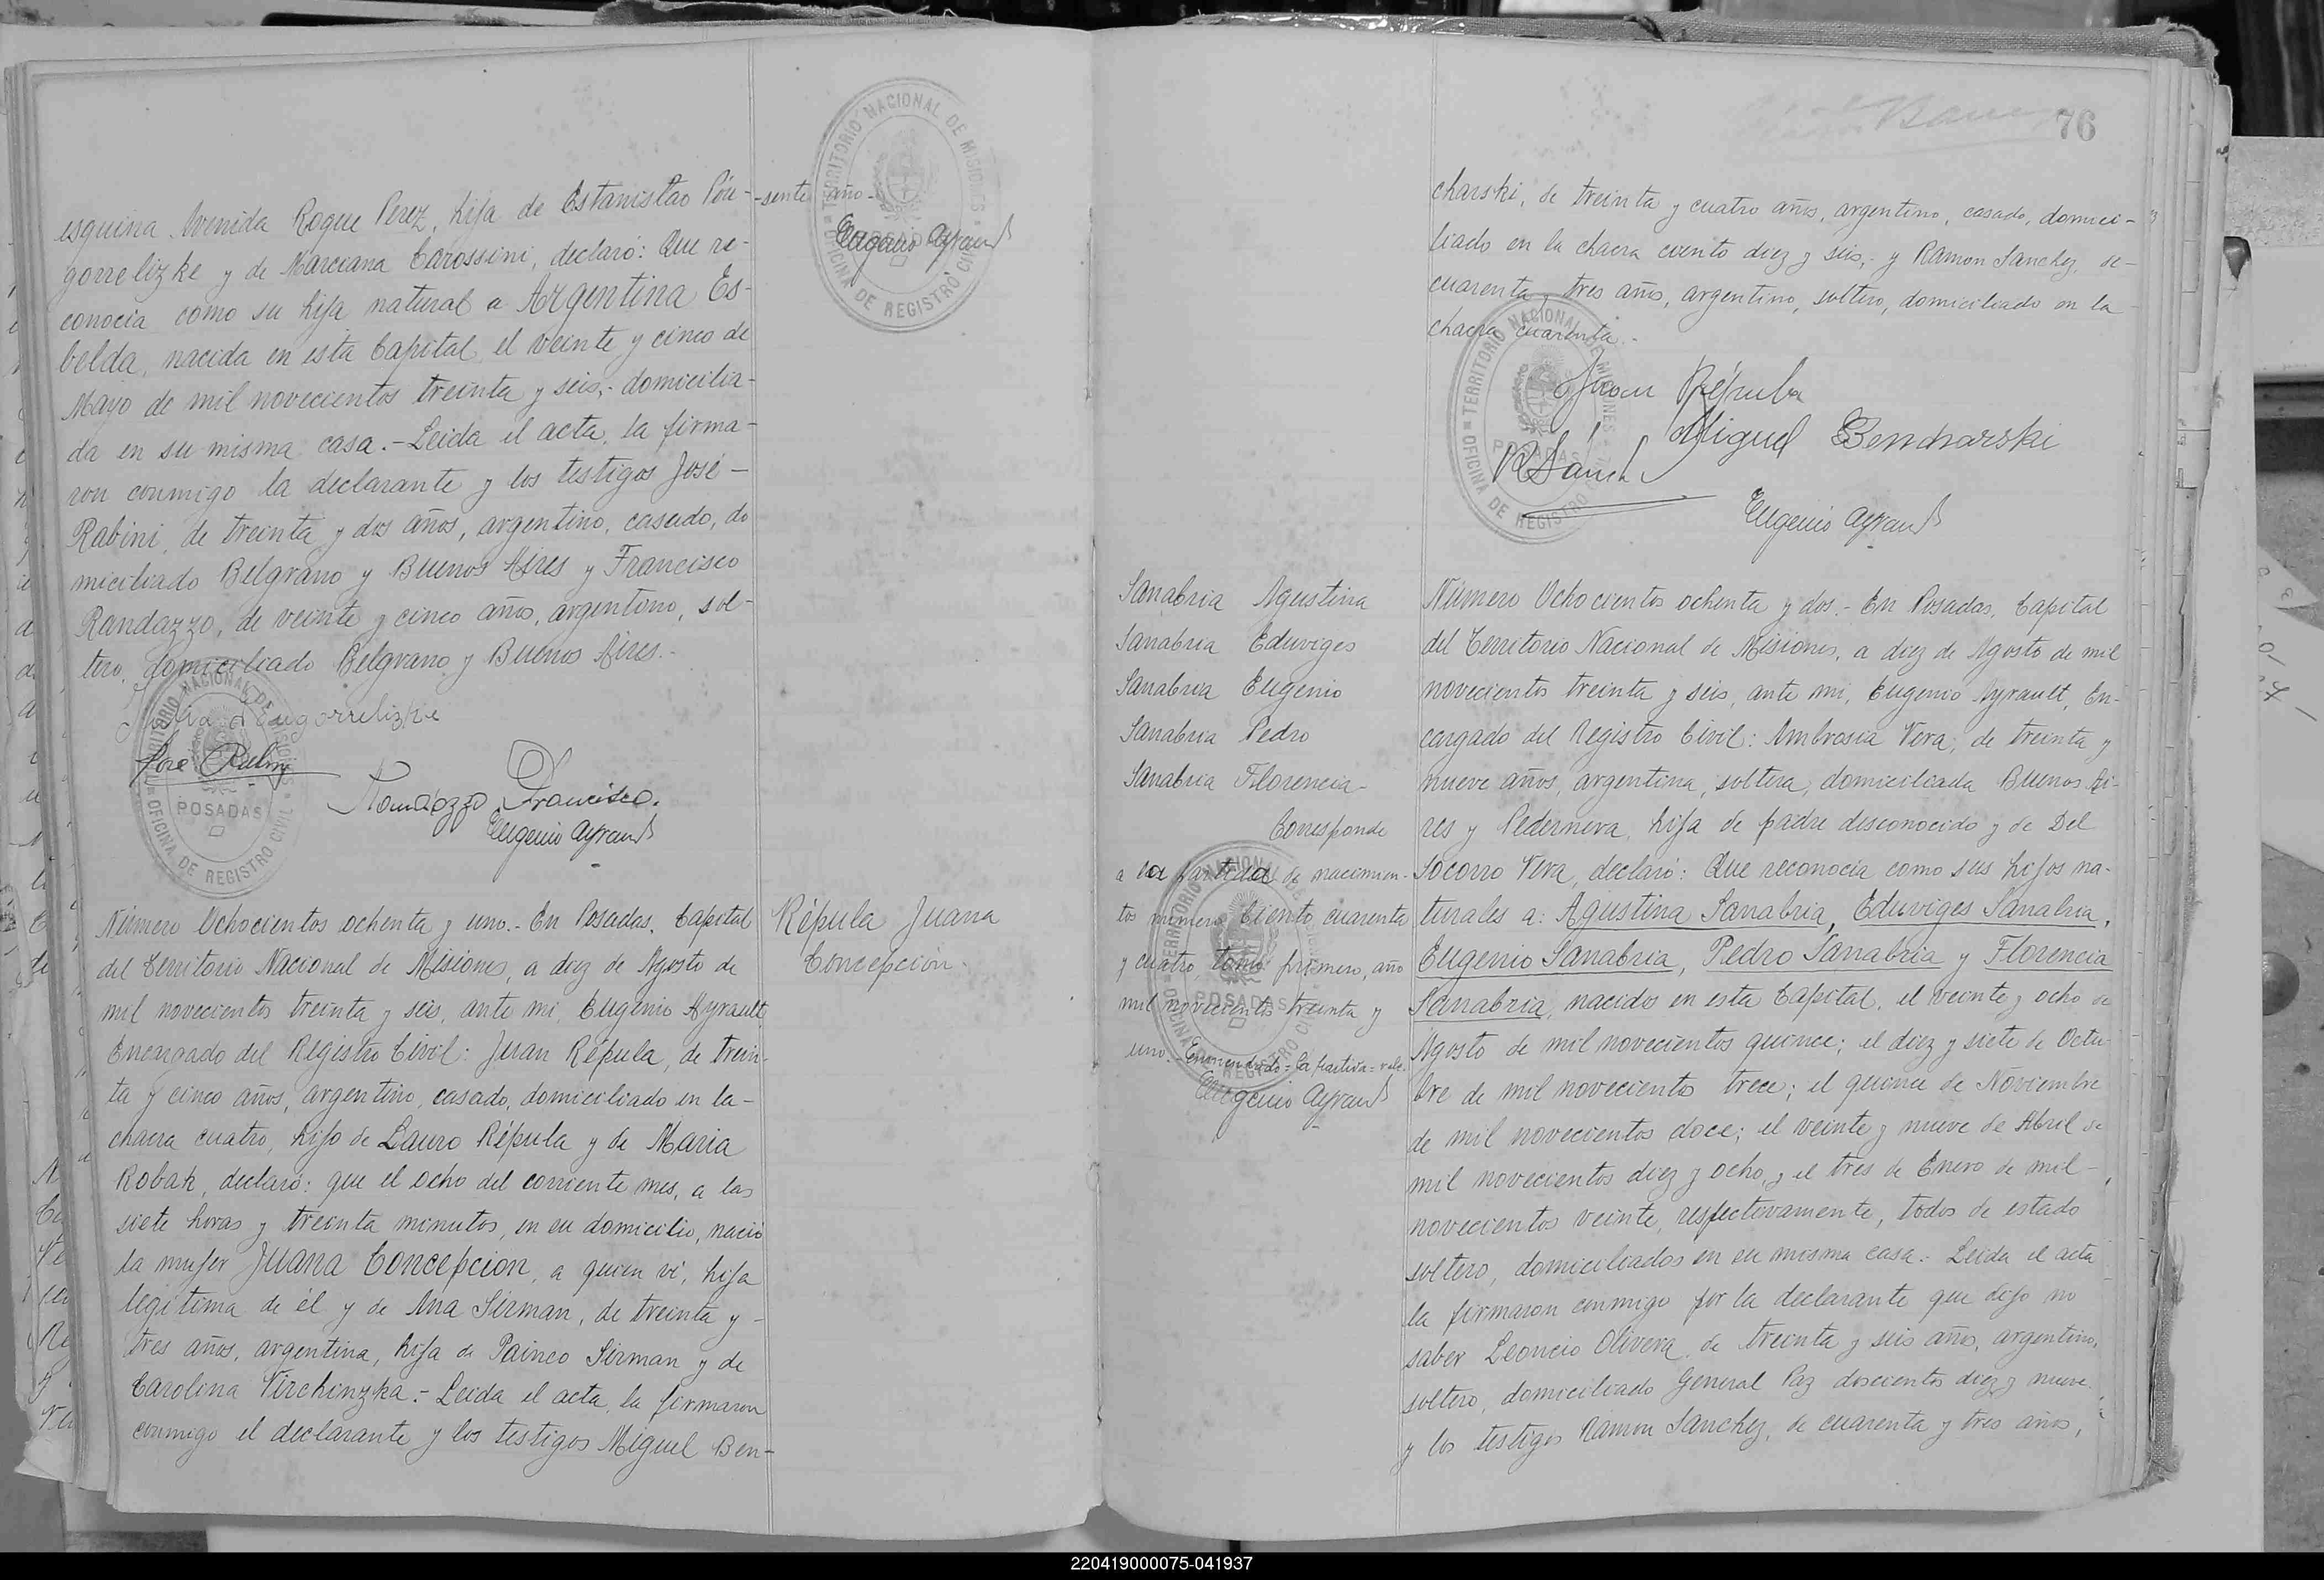 esquina Avenida Roque Perez, hija de Estanislao Póu-
gorrelizke y de Marciana Carossini, declaró: Que re-
conocia como su hija natural a Argentina Es-
belda, nacida en esta Capital el veinte y cinco de
Mayo de mil novecientos treinta y seis,- domicilia-
da en su misma casa.- Leida el acta, la firma-
ron conmigo la declarante y los testigos José -
Rabini, de treinta y dos años, argentino, casado, do
miciliado Belgrano y Buenos Aires y Francisco
Randazzo, de veinte y cinco años, argentino, sol-
tero, domiciliado Belgrano y Buenos Aires.-
José Rabini
Randazzo Francisco.
Eugenio Ayrault
-sente año.-
Eugenio Ayrault
TERRITORIO NACIONAL DE MISIONES
POSADAS
OFICINA DE REGISTRO CIVIL
Número Ochocientos ochenta y uno.- En Posadas, Capital
del Territorio Nacional de Misiones, a diez de Agosto de
mil novecientos treinta y seis, ante mi, Eugenio Ayrault
Encargado del Registro Civil: Juan Répula, de trein-
ta y cinco años, argentino, casado, domiciliado en la-
chacra cuatro, hijo de Lauro Répula y de Maria
Robak, declaró: que el ocho del corriente mes, a las
siete horas y treinta minutos, en su domicilio, nació
la mujer Juana Concepcion, a quien vi, hija
legitima de él y de Ana Sirman, de treinta y -
tres años, argentina, hija de Paineo Sirman y de
Carolina Virchinzka.- Leida el acta, la firmaron
conmigo el declarante y los testigos Miguel Ben-
Répula Juana
Concepción.
76
charski, de treinta y cuatro años, argentino, casado, domici-
liado en la chacra ciento diez y seis,- y Ramon Sanchez, de-
cuarenta y tres años, argentino, soltero, domiciliado en la
chacra cuarenta.-
Juan Répula
Miguel Bencharski
R Sanch
Eugenio Ayrault
TERRITORIO NACIONAL DE MISIONES
POSADAS
OFICINA DE REGISTRO CIVIL
Sanabria Agustina
Sanabria Eduviges
Sanabria Eugenio
Sanabria Pedro
Sanabria Florencia-
Corresponde
a la partida de nacimien-
tos número Ciento cuarenta
y cuatro, tomo primero, año
mil novecientos treinta y
uno.- Enmendado=la partida=vale.
Eugenio Ayrault
Número Ochocientos ochenta y dos.- En Posadas, Capital
del Territorio Nacional de Misiones, a diez de Agosto de mil
novecientos treinta y seis, ante mi, Eugenio Ayrault, En-
cargado del Registro Civil: Ambrosia Vera, de treinta y
nueve años, argentina, soltera, domiciliada Buenos Ai-
res y Pedernera, hija de padre desconocido y de Del
Socorro Vera, declaró: Que reconocia como sus hijos na-
turales a: Agustina Sanabria, Eduviges Sanabria,
Eugenio Sanabria, Pedro Sanabria y Florencia
Sanabria, nacidos en esta Capital, el veinte y ocho de
Agosto de mil novecientos quince; el diez y siete de Octu-
bre de mil novecientos trece; el quince de Noviembre
de mil novecientos doce; el veinte y nueve de Abril de
mil novecientos diez y ocho, y el tres de Enero de mil-
novecientos veinte, respectivamente, todos de estado
soltero, domiciliados en su misma casa.- Leida el acta
la firmaron conmigo por la declarante que dijo no
saber Leoncio Olivera, de treinta y seis años, argentino,
soltero, domiciliado General Paz doscientos diez y nueve
y los testigos Ramon Sanchez, de cuarenta y tres años,
220419000075-041937